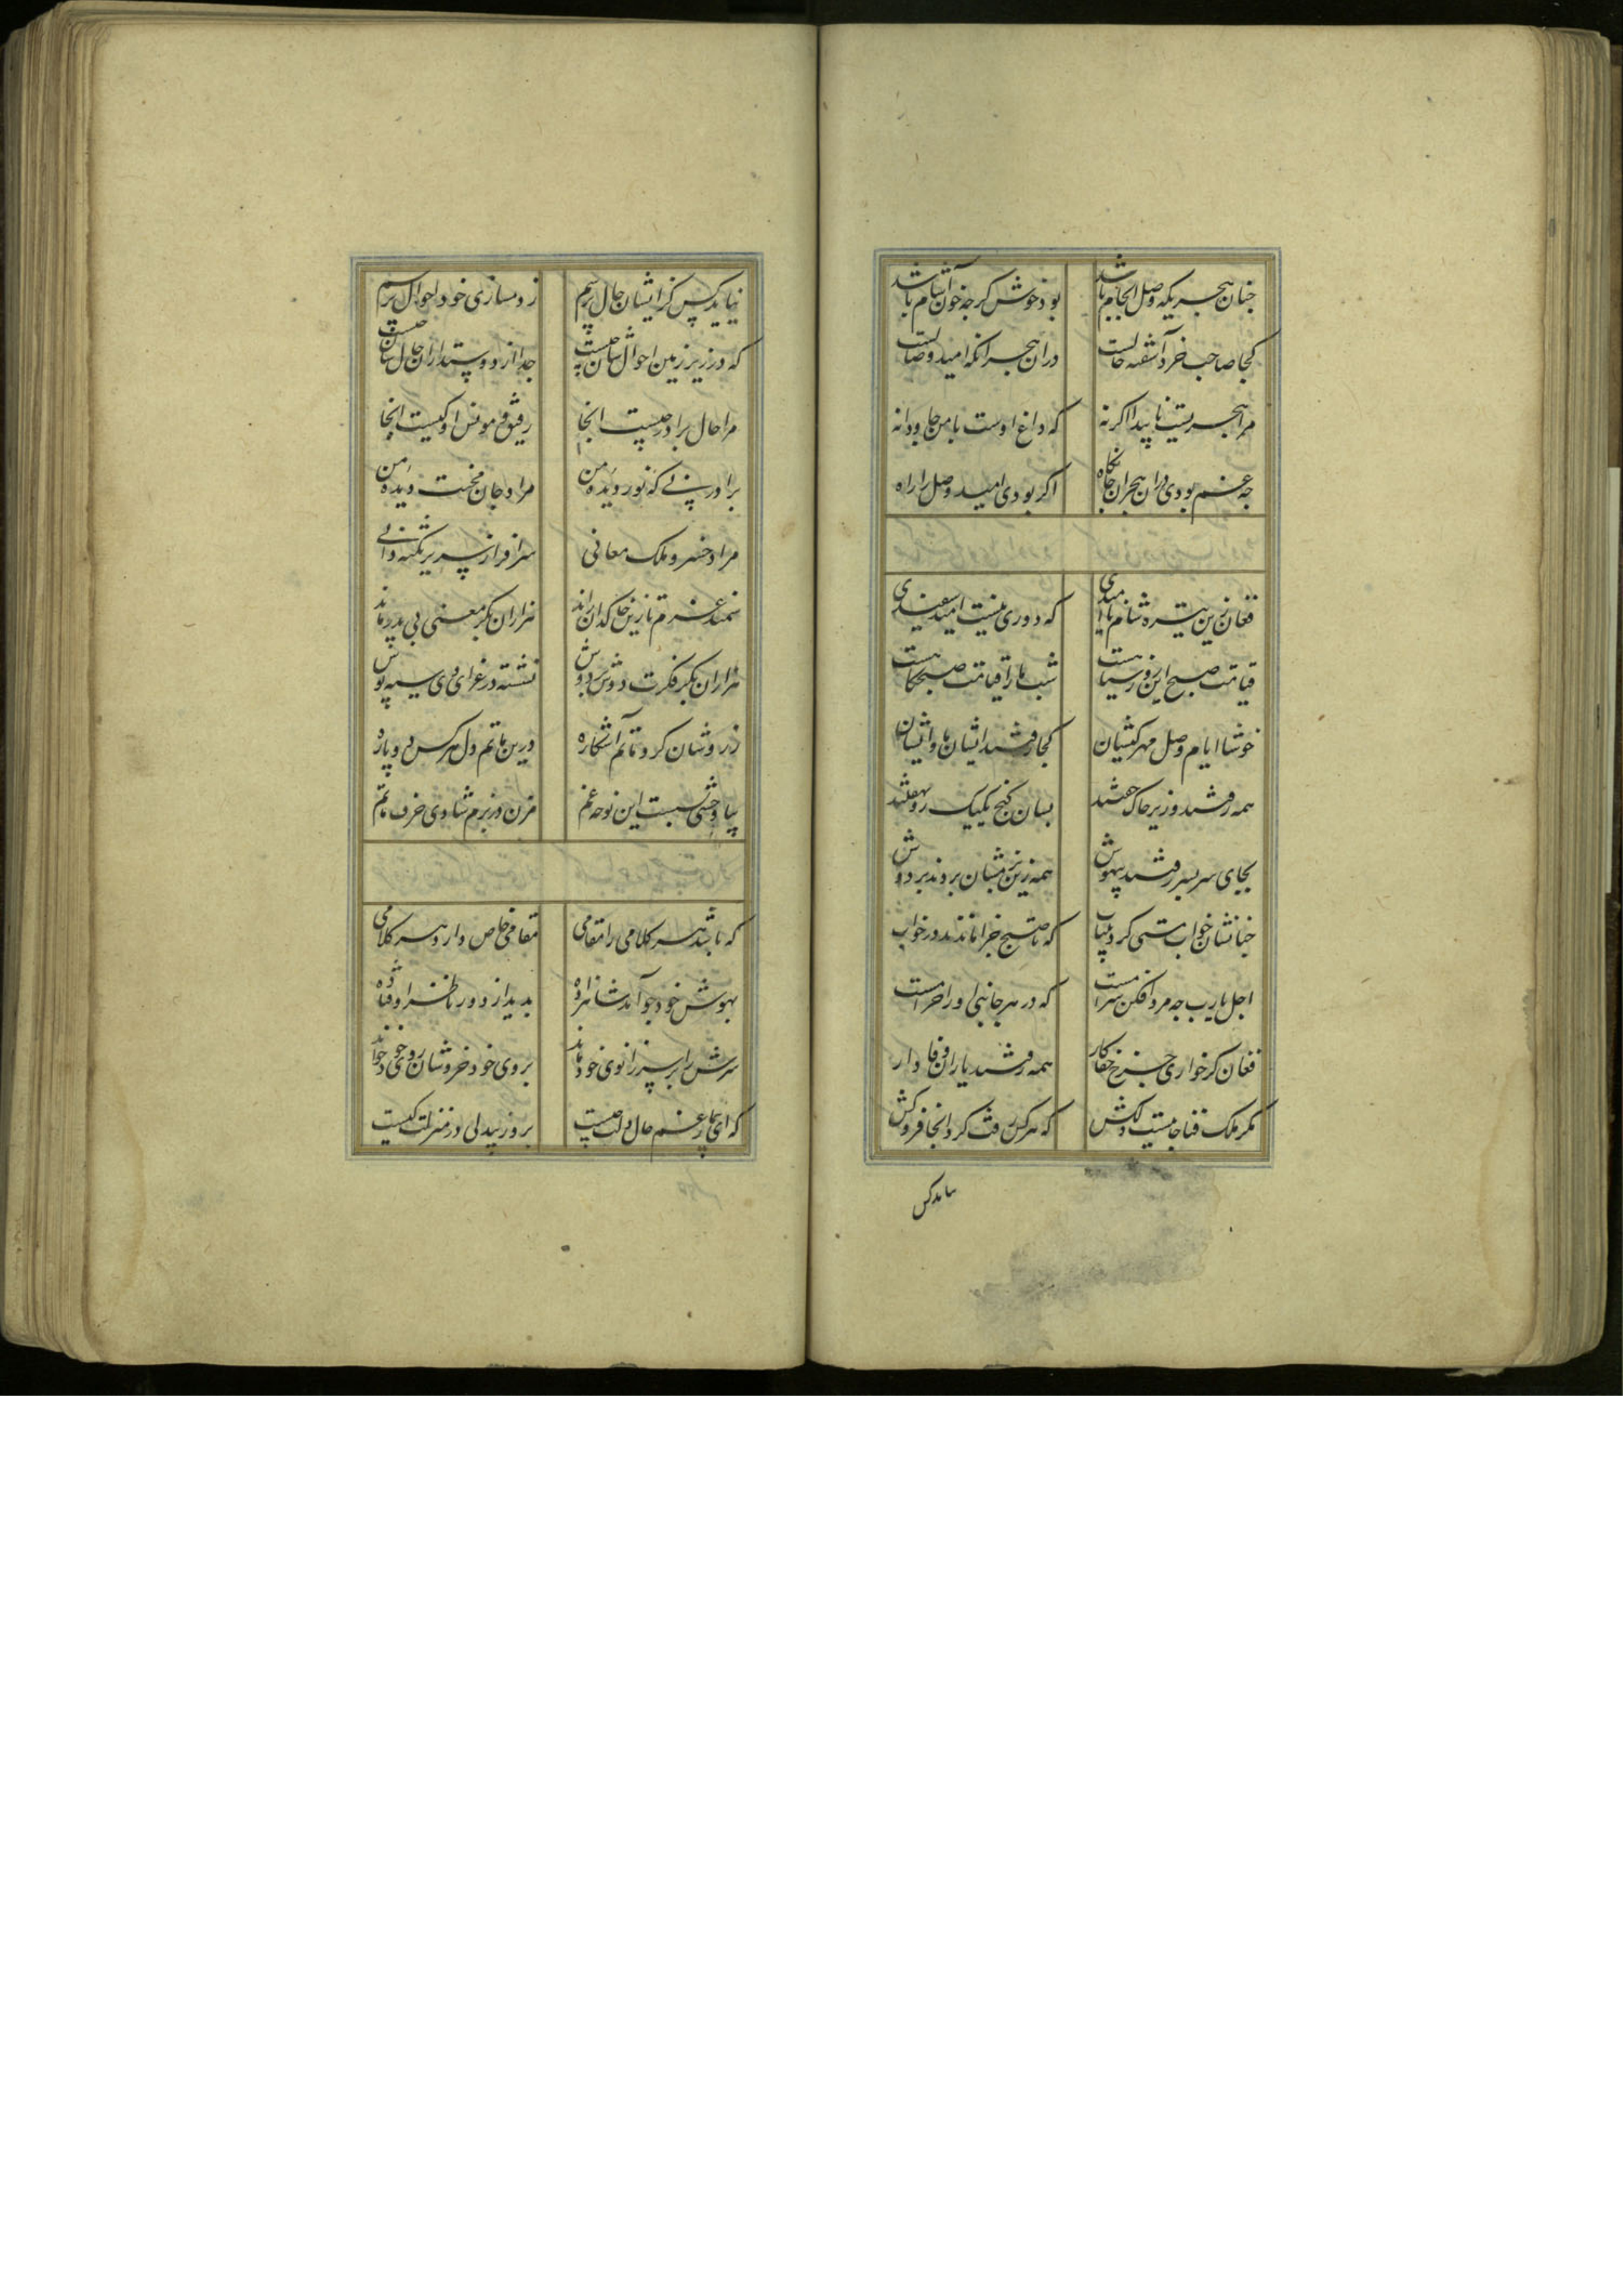 چنان هجریکه وصل انجام باشد بود خوش گرچه خون آشام باشد
کجا صاحب خرد آشفته حالست دران هجرانکه امید وصالست
مرا هجریست ناپیدا کرانه که داغ اوست با من جاودانه
چه غم بودی دران هجران جانکاه اگر بودی امید وصل را راه
فغان زین تیره شام ناامیدی که دوری نیست امید سفیدی
قیامت صبح این روز سیاهست شب ما را قیامت صبحگاهست
خوشا ایام وصل مهر کیشان کجا رفتند ایشان با و ایشان
همه رفتند و زیر خاک خفتند بسان گنج یکیک رو نهفتند
بجای سر بسر رفتند بیهوش همه زین بزمشان بردند بر دوش
چنانشان خواب مستی کرد بیتاب که تا صبح جزا ماندند در خواب
اجل یارب چه مرد افکن شرابست که در هر جانبی او را
فغان کز خواری چرخ جفاکار همه رفتند یاران وفادار
مگر ملک فنا جائیست دلکش که هر کس رفت کرد آنجا فروکش
نیاید کس کز ایشان حال پرسم ز دمسازی خود احوال پرسم
که در زیر زمین احوالشان چیست جدا از دوستداران حالشان چیست
مرا حال برادر چیست آنجا رفیق و مونس او کیست آنجا
برادر نی که نور دیده من مراد جان محنت دیده من
مرادی خسرو ملک معانی سرافراز سریر نکته دانی
سمند عزم تا زین خاکدان راند هزاران بکر معنی بی پدر ماند
هزاران بکر فکرت دوش بر دوش نشسته در عزای وی سیه پوش
ز روشان گرد ماتم آشکاره درین ماتم دل هر کس دو پاره
بیا وحشی بسست این نوحه غم مزن در بزم شادی حرف ماتم
که باشد هر کلامی را مقامی مقامی خاص دارد هر کلامی
بهوش خود چو آمد شاهزاده بدید از دور ناظر اوفتاده
سرش را بر سر زانوی خود ماند بروی خود خروشان روی خود خواند
که ای بیمار غم حال دلت چیست بروز بیدلی در منزلت کیست
نیاید کس